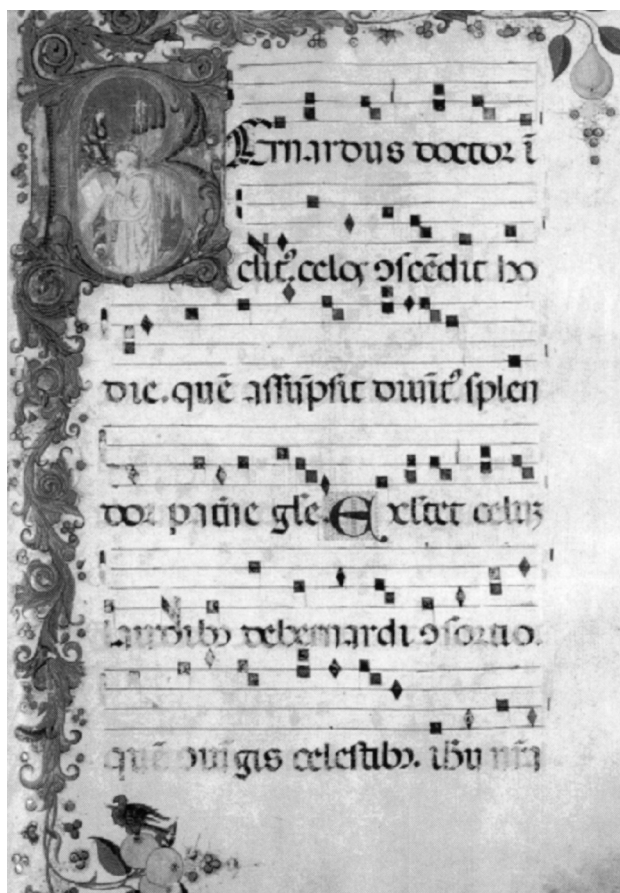 Bernardus doctor ī
clitꝰ celos ꝯscēdit ho
die. quē assūpsit diuītꝰ splen
dor patrie glē. Exltet celuꝫ
laudibꝫ de bernardi ꝯsortio.
quē ciuis celestibꝫ. ihu